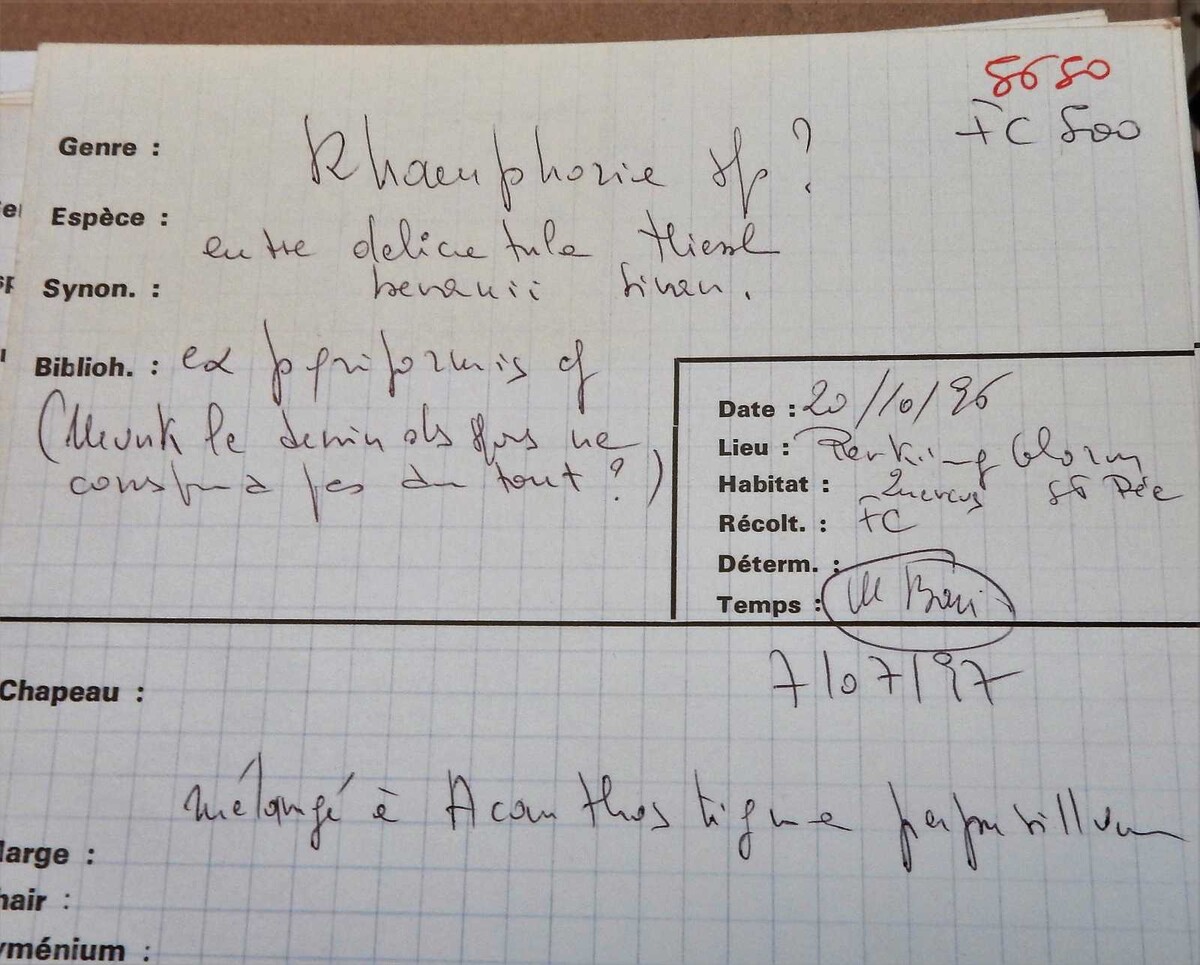 8680
FC 500
Genre : Rhamphoria sp ?
Espèce :
entre delicatula Niessl
Synon. : bevanii Sivan.
Biblioh. : ex pyriformis cf
(Munk le dessin des spores ne
correspond pas du tout ? )
Date : 20/10/96
Lieu : Parking
Habitat : Quercus 86 Pée
Récolt. : FC
Déterm. :
Temps :
7/07/97
Chapeau :
mélangé à Acanthostigma perpusillum
Marge :
hair :
yménium :